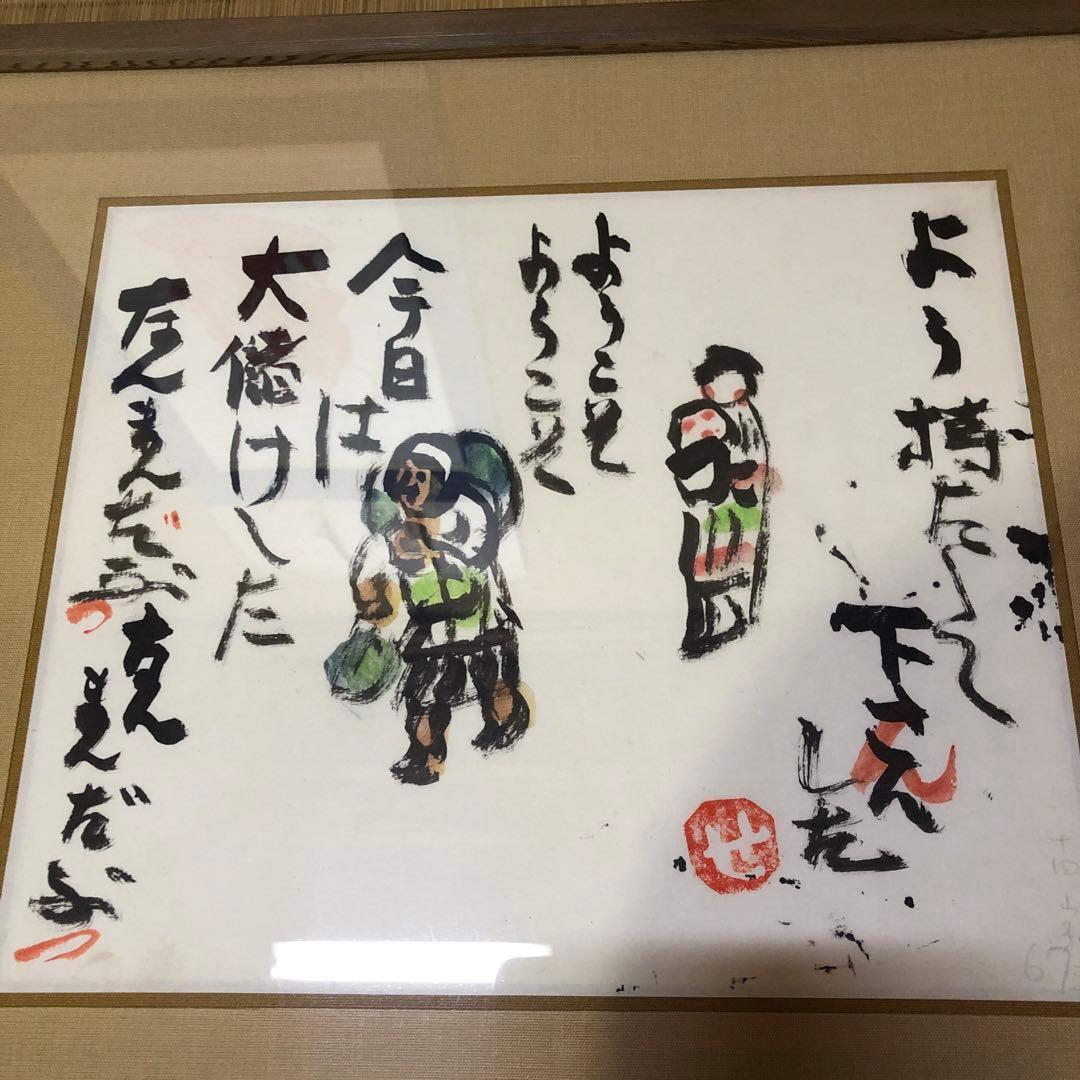 よう持たして
下さんした
ようこそ
ようこそ
今日は
大儲けした
なんまんだぶつ
なんまんだぶつ
せ